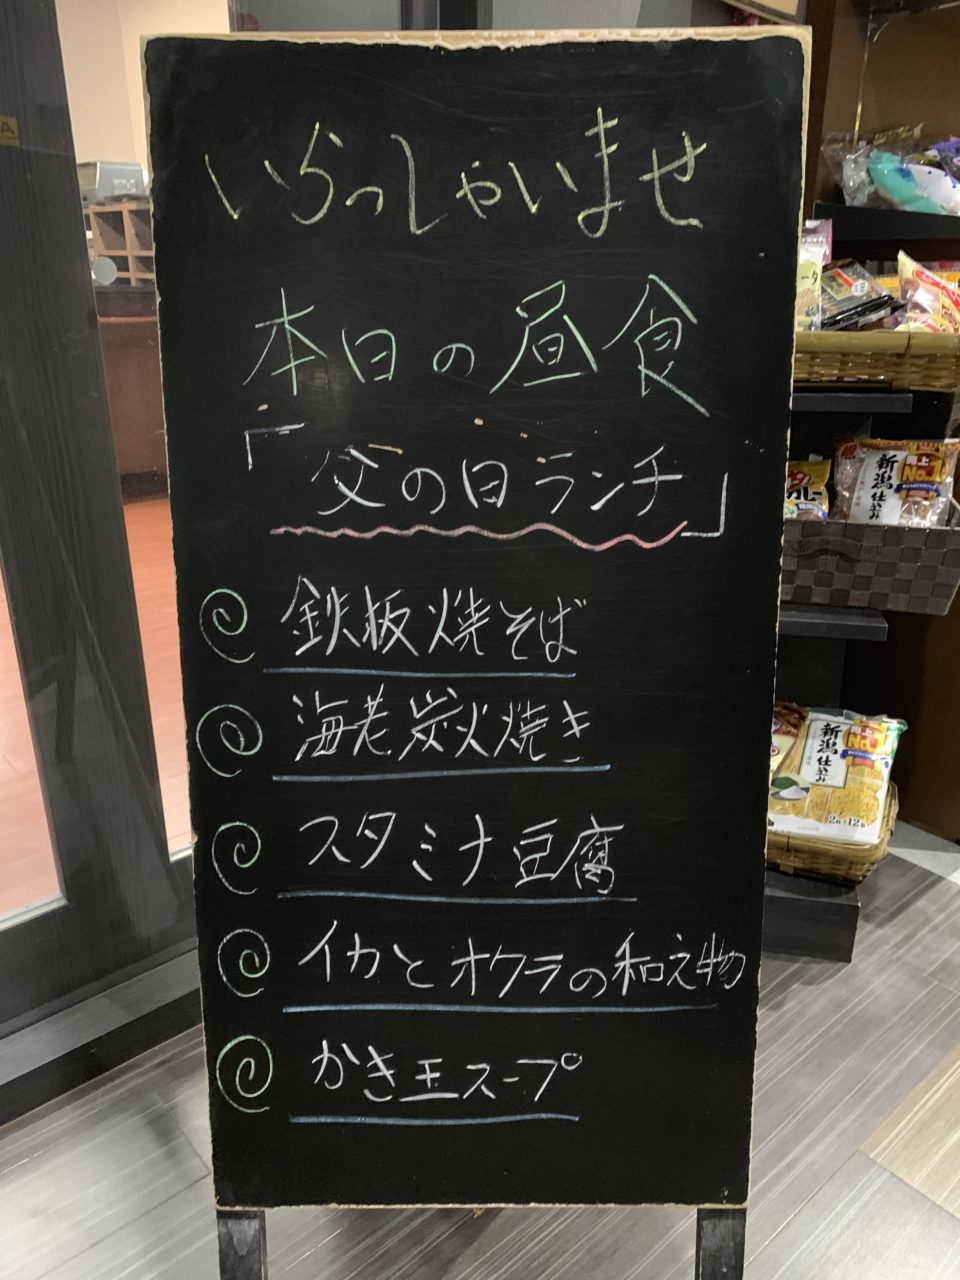 いらっしゃいませ
本日の昼食
「父の日ランチ」
鉄板焼そば
海老炭火焼き
スタミナ豆腐
イカとオクラの和え物
かき玉スープ
カレー
向上 No.1
新潟仕込み
No.1
新潟仕込み
2枚×12袋